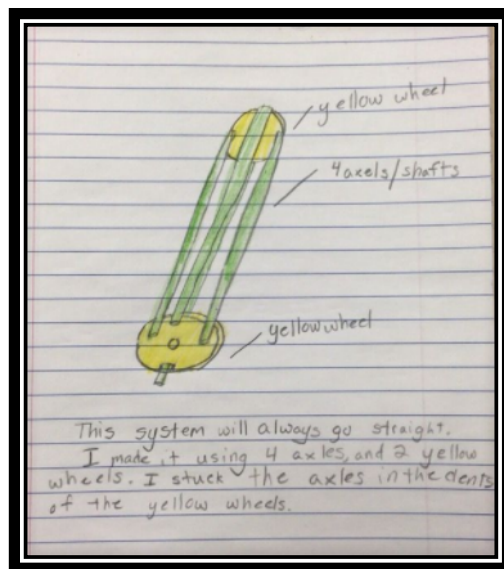 yellow wheel
4 axels/shafts
yellow wheel
This system will always go straight.
I made it using 4 axles, and 2 yellow
wheels. I stuck the axles in the dents
of the yellow wheels.